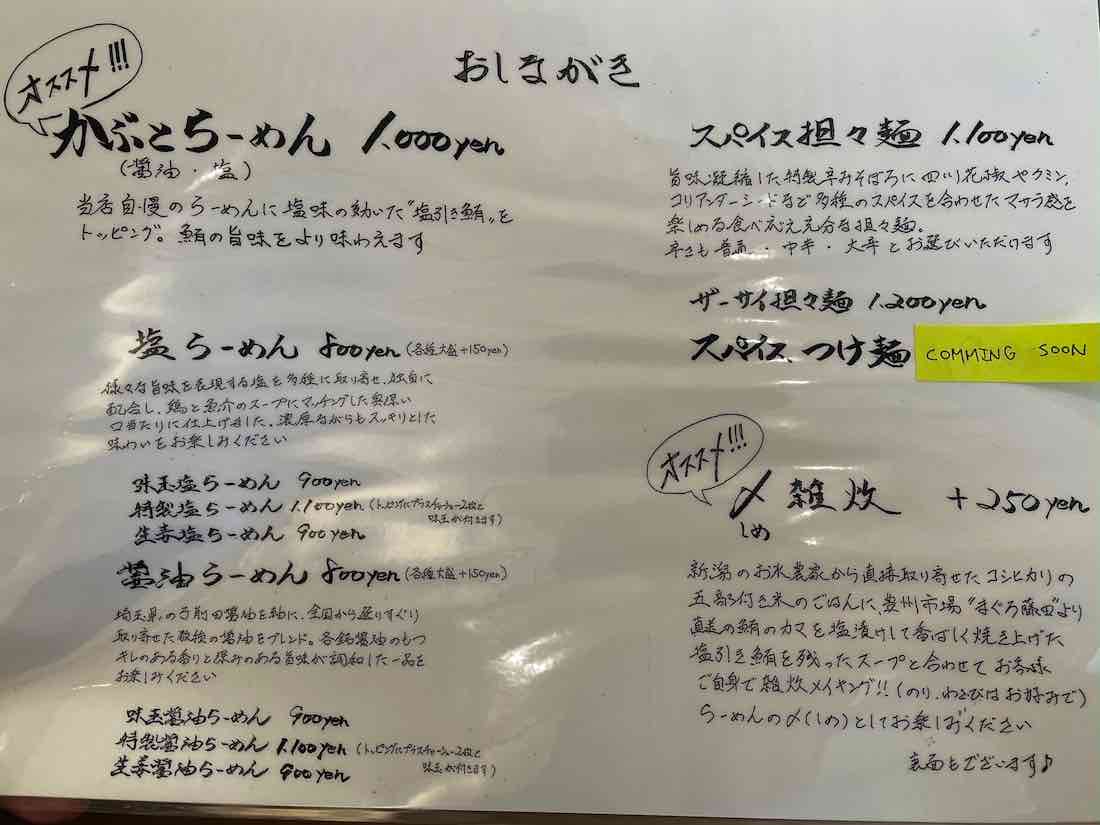 おしながき
オススメ!!!
かぶとらーめん 1.000yen
(醤油・塩)
当店自慢のらーめんに塩味の効いた"塩引き鮪"を
トッピング。鮪の旨味をより味わえます
塩らーめん 800yen (各種大盛+150yen)
様々な旨味を表現する塩を多種に取り寄せ、独自に
配合し、鶏と魚介のスープにマッチングした奥深い
口当たりに仕上げました。濃厚ながらもスッキリとした
味わいをお楽しみください
味玉塩らーめん 900yen
特製塩らーめん 1.100yen (トッピングにプラスチャーシュー2枚と
味玉が付きます)
生姜塩らーめん 900yen
醤油らーめん 800yen (各種大盛+150yen)
埼玉県の弓削田醤油を軸に、全国から選りすぐり
取り寄せた数種の醤油をブレンド。各銘醤油のもつ
キレのある香りと深みのある旨味が調和した一品を
お楽しみください
味玉醤油らーめん 900yen
特製醤油らーめん 1.100yen (トッピングにプラスチャーシュー2枚と
味玉が付きます)
生姜醤油らーめん 900yen
スパイス担々麺 1.100yen
旨味凝縮した特製辛みそぼろに四川花椒やクミン、
コリアンダーシードなど多種のスパイスを合わせたマサラ感を
楽しめる食べ応え充分な担々麺。
辛さも普通・中辛・大辛とお選びいただけます
ザーサイ担々麺 1.200yen
スパイスつけ麺 COMMING SOON
オススメ!!!
〆雑炊 +250yen
しめ
新潟のお米農家から直接取り寄せたコシヒカリの
五部付き米のごはんに、豊州市場"まぐろ藤田"より
直送の鮪のカマを塩漬けして香ばしく焼き上げた
塩引き鮪を残ったスープと合わせてお客様
ご自身で雑炊メイキング!!(のり、わさびはお好みで)
らーめんの〆(しめ)としてお楽しみください
裏面もございます♪